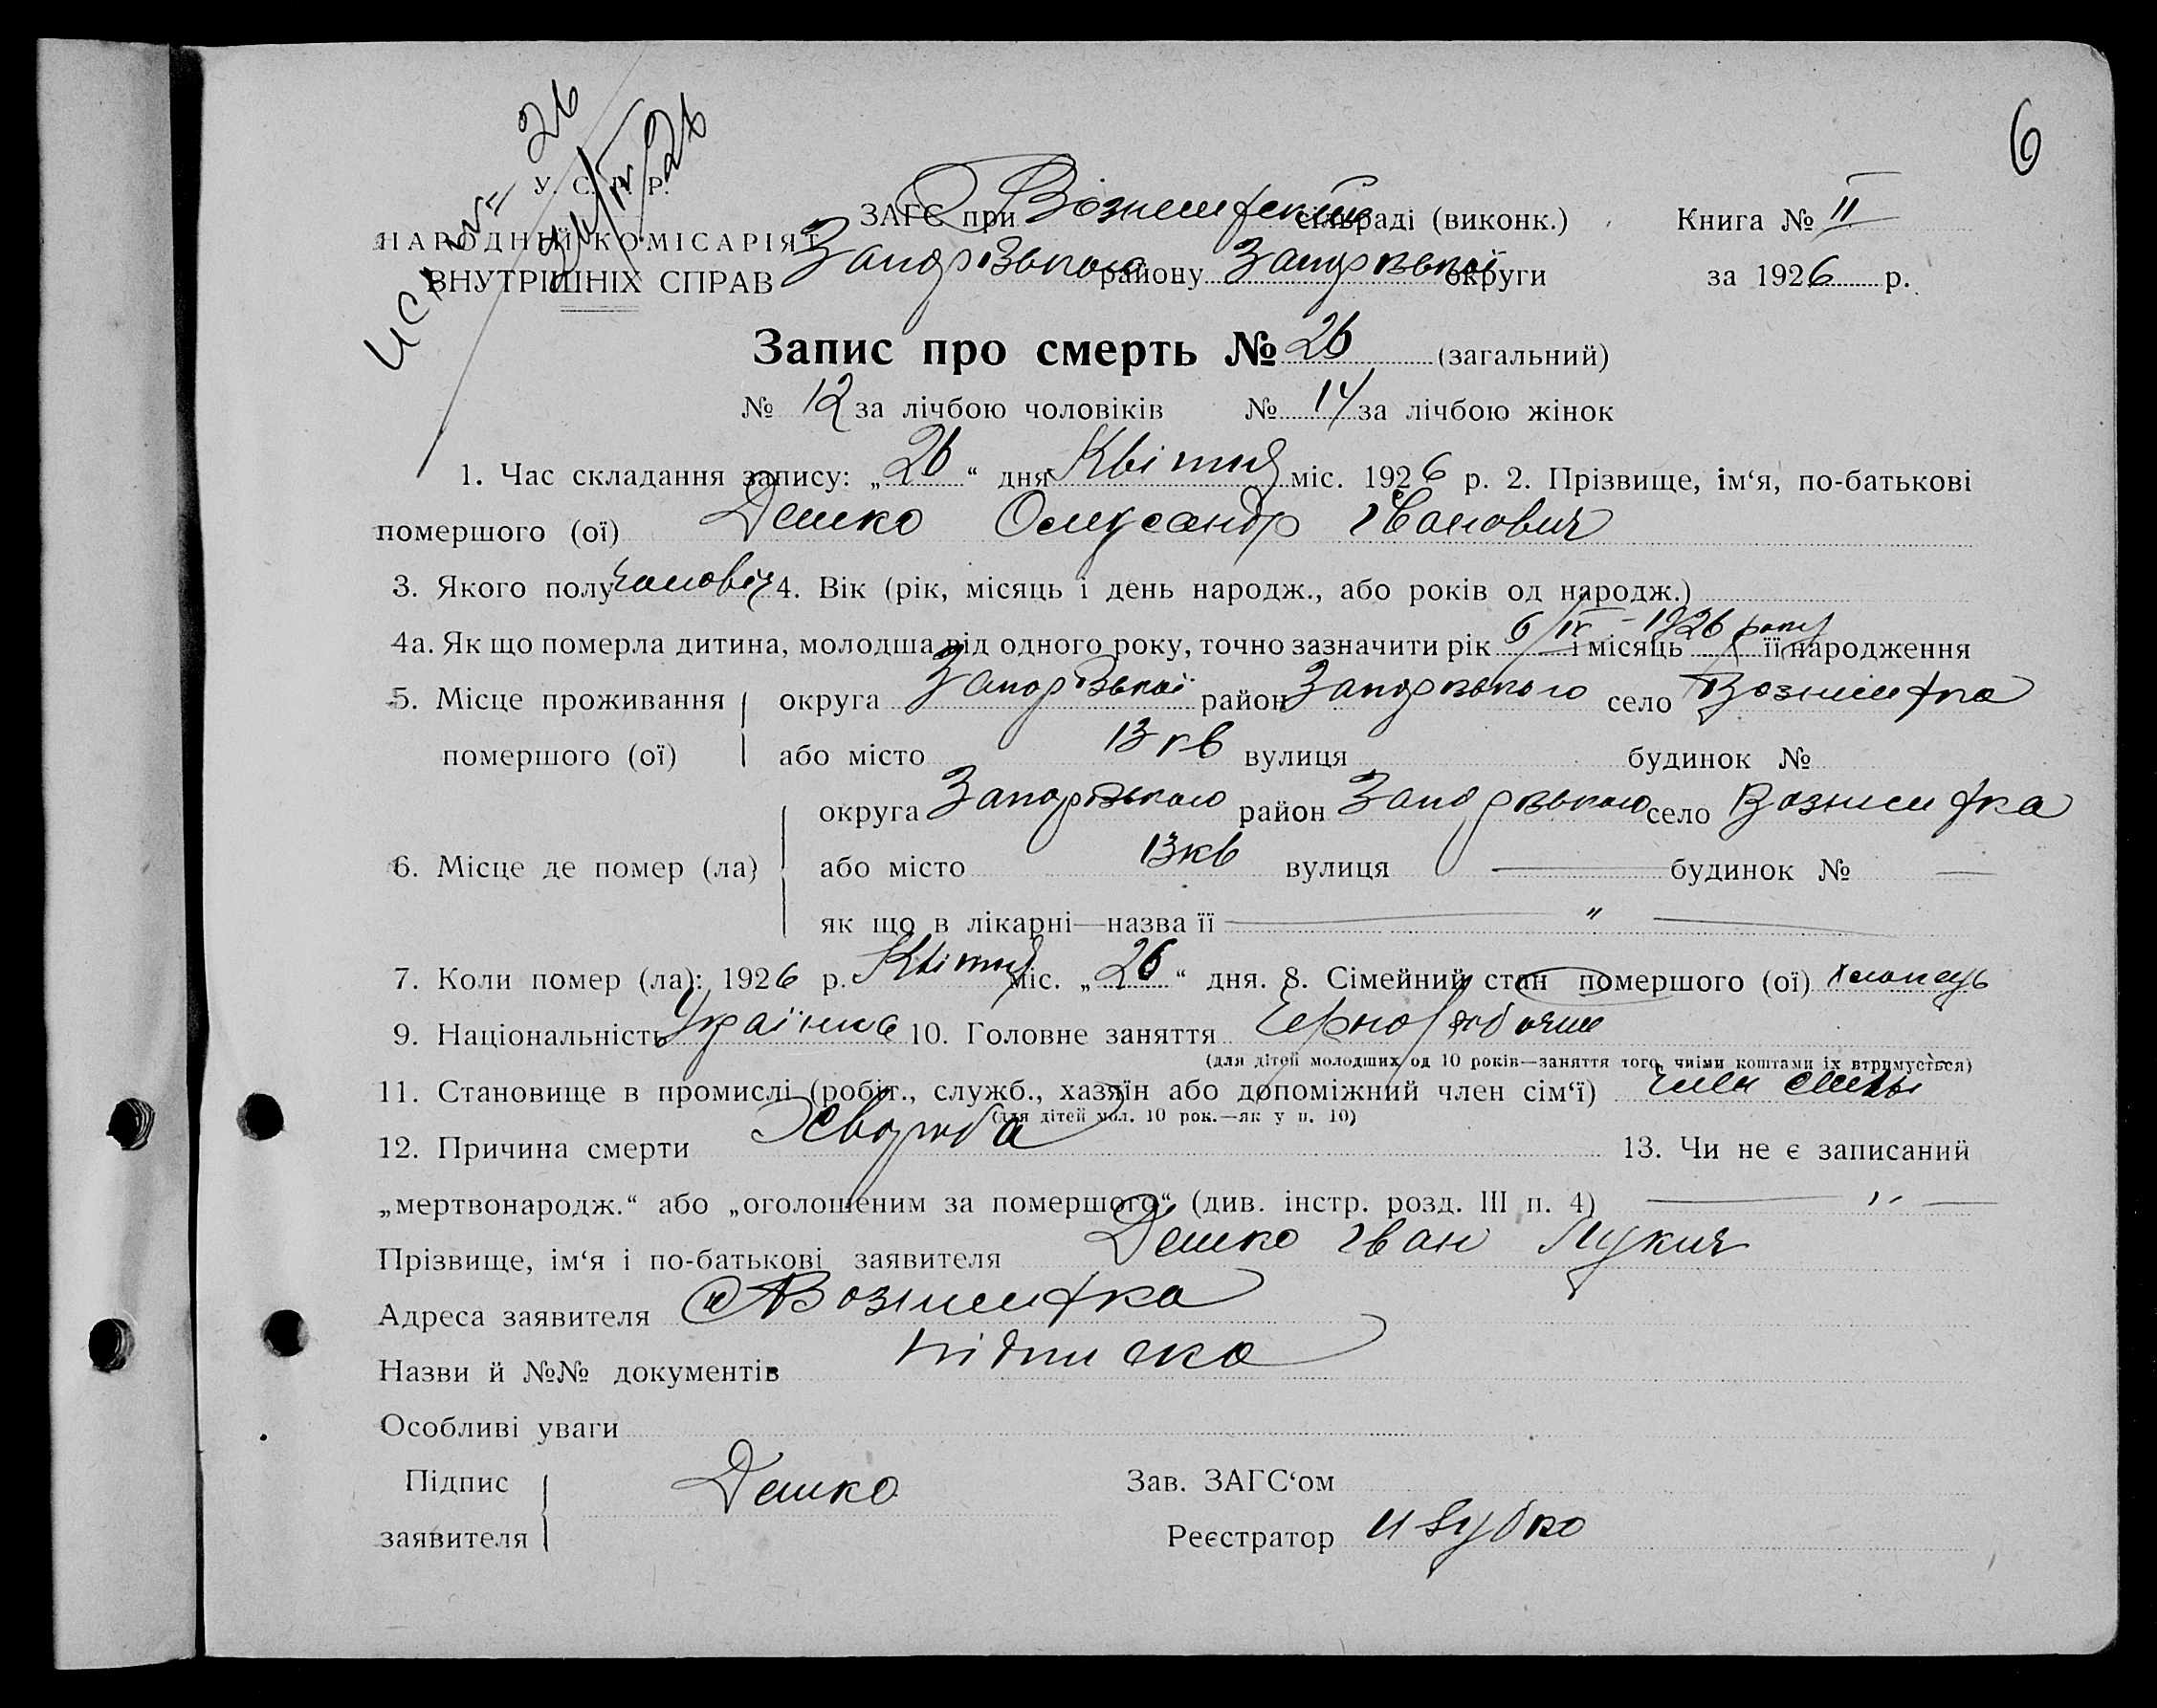 6
исх № 26
26/IV 26
У. С. Р. Р.
НАРОДНІЙ КОМІСАРІЯТ
ВНУТРІШНІХ СПРАВ
ЗАГС при сільраді (виконк.) Книга № II
Запорізького району Запорізької округи за 1926 р.
Запис про смерть № 26 (загальний)
№ 12 за лічбою чоловіків № 14 за лічбою жінок
1. Час складання запису: „26“ дня Квітня міс. 1926 р. 2. Прізвище, ім‘я, по-батькові
помершого (ої) Дешко Олександр Іванович
3. Якого полу чоловіч 4. Вік (рік, місяць і день народж., або років од народж.)
4а. Як що померла дитина, молодша від одного року, точно зазначити рік 6/IV – 1926 року і місяць її народження
5. Місце проживання округа Запорізької район Запорізького село Вознесенка
помершого (ої) або місто 13 кв вулиця будинок №
округа Запорізького район Запорізького село Вознесенка
6. Місце де помер (ла) або місто 13 кв вулиця — будинок № —
як що в лікарні—назва її — „ —
7. Коли помер (ла): 1926 р. Квітня міс. „26“ дня. 8. Сімейний стан помершого (ої) хлопець
9. Національність Українець 10. Головне заняття
(для дітей молодших од 10 років—заняття того, чиїми коштами їх втримується)
11. Становище в промислі (робіт., служб., хазяїн або допоміжний член сім‘ї) член
(для дітей мол. 10 рок.—як у п. 10)
12. Причина смерти 13. Чи не є записаний
„мертвонародж.“ або „оголошеним за помершого“ (див. інстр. розд. III п. 4) — „ —
Прізвище, ім‘я і по-батькові заявителя Дешко Іван Лукич
Адреса заявителя Вознесенка
Назви й №№ документів підписка
Особливі уваги
Підпис Дешко Зав. ЗАГС‘ом
заявителя Реєстратор